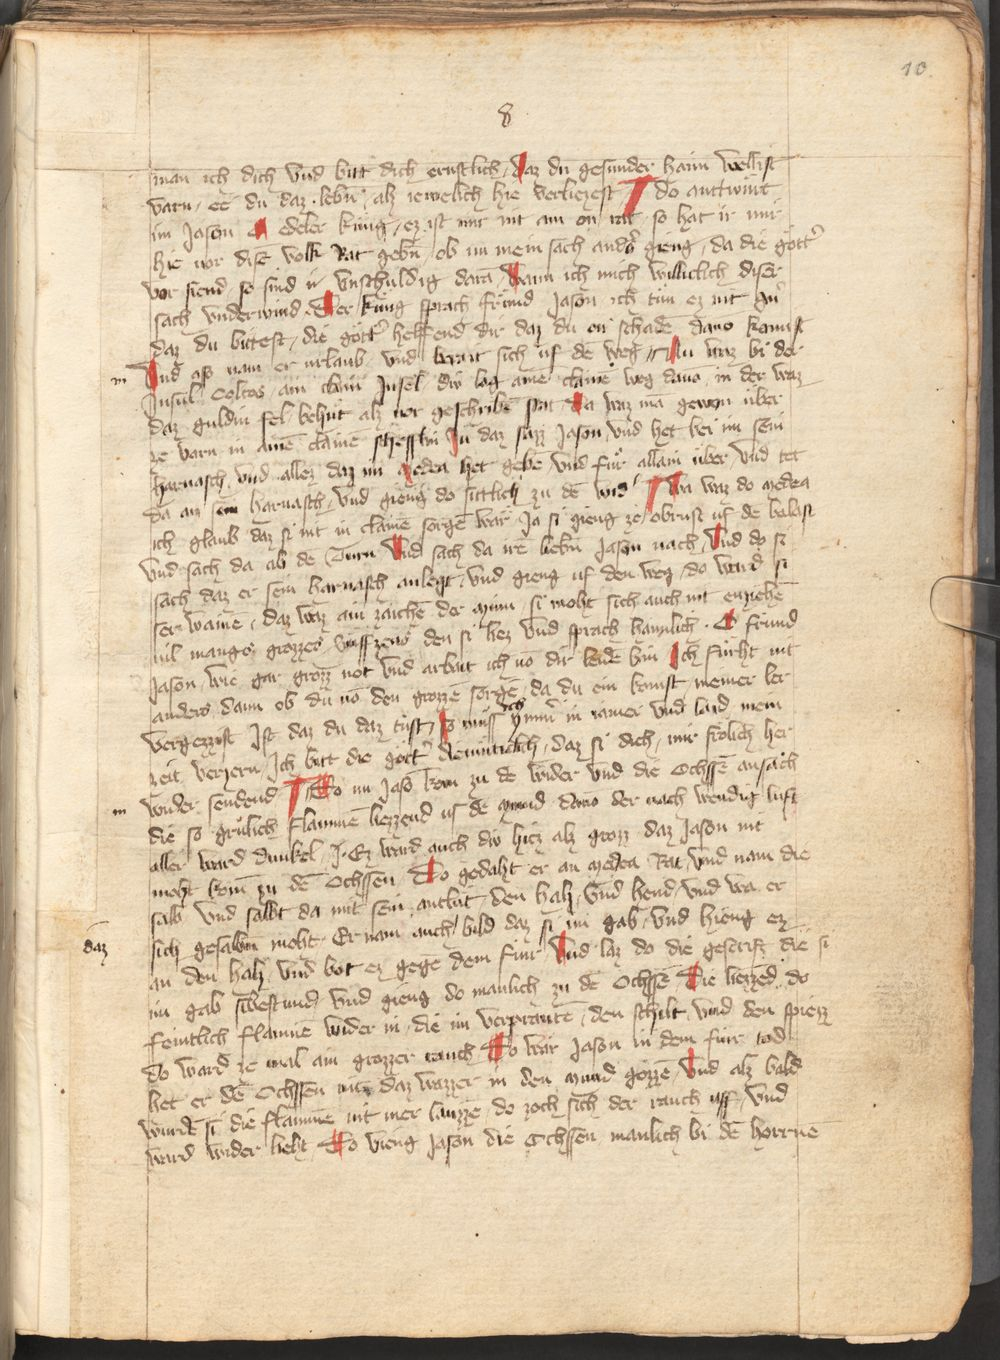 10
8
man ich dich vnd bitt dich ernstlich / Daz du gesunder haim wellist
varn / ee du daz lebn̄ / alz iemelich hie verliezest / do antwürt
im Jason O edeler küng / ez ist mir nit am on rat so hat ir mir
hie vor disē volk Rat gebn̄ / ob im mein sach and̄s gieng / da die gött̄
vor siend / so sind ir vnschuldig daran / Wann ich mich willicklich diser
sach vnderwind Der küng sprach fründ Jason / ich tün ez nit gern̄
daz du bittest / die gött̄ helffend dir daz du on schadē dauō komst
Vnd also nam er vrlaub vnd berait sich uf dē weg / Nu waz bi der
Insul Colcos / ain clain Insel / die lag ainē clainē weg dauō / in der waz
daz guldin fel behüt alz vor geschribē stat Da waz mā gewon über
ze varn in ainē clainē schefflin In daz sazz Jason / vnd het bei im sein
harnasch / vnd allez daz im Medea het gebē vnd für allain über / vnd tet
da an sein harnasch / vnd gieng do sittlich zu dē wid̄ Wa waz do Medea
ich glaub daz si nit in clainē sorgē wär Ja si gieng ze obrust uf dē balast
vnd sach da ab dē Turn Vnd sach da irē liebn̄ Jason nach / Vnd do si
sach daz er sein harnasch anlegt / vnd gieng uf den weg / do ward si
ser wainē / daz waz ain zaichē der minn / si moht sich auch nit enziehē
vil mangs grozzes süfftzens den si liez vnd sprach hainlich · O fründ
Jason / wie gar grozz not vnd arbait ich vō dir lidē bin Ich fürht nit
anders dann ob du vō den grozzē sorgē / da du ein komst / meiner ler
vergezzist Ist daz du daz tüst / so müss ich ym̄er in iamer vnd laid mein
zeit verzern / Ich bitt die gött̄ diemüticlich / daz si dich / mir frölich her
wider sendend Do nu Jasō kom zu dē wider vnd die Ochssē ansach
die so grülich flammē liezzend uf dē mund / dauō der nach wendig luft
aller ward dunkel / Ez ward auch diu hicz alz grozz daz Jason nit
moht komē zu dē Ochssen Do gedaht er an Medea Rat / vnd nam die
salb vnd salbt da mit sein antlüt / den halz / vnd hend / vnd wa er
sich gesalben moht Er nam auch bild daz si im gab / vnd hieng ez
daz
an den halz vnd bot ez gegē dem für Vnd laz do die geschrift die si
im gab sibestund / vnd gieng do manlich zu dē Ochssē Die liezzēd do
feintlich flammē wider in / die im verprantē / den schilt / vnd den spiezz
do ward ze mal ain grozzer rauch Do wär Jason in dem für tod
het er dē Ochssen nit daz wazzer in den mund gozze / Vnd alz bald
wurdē si die flammē nit mer lauzzē / do zoch sich der rauch uff / vnd
ward wider lieht / Do vieng Jason die Ochssen manlich bi dē hornnē